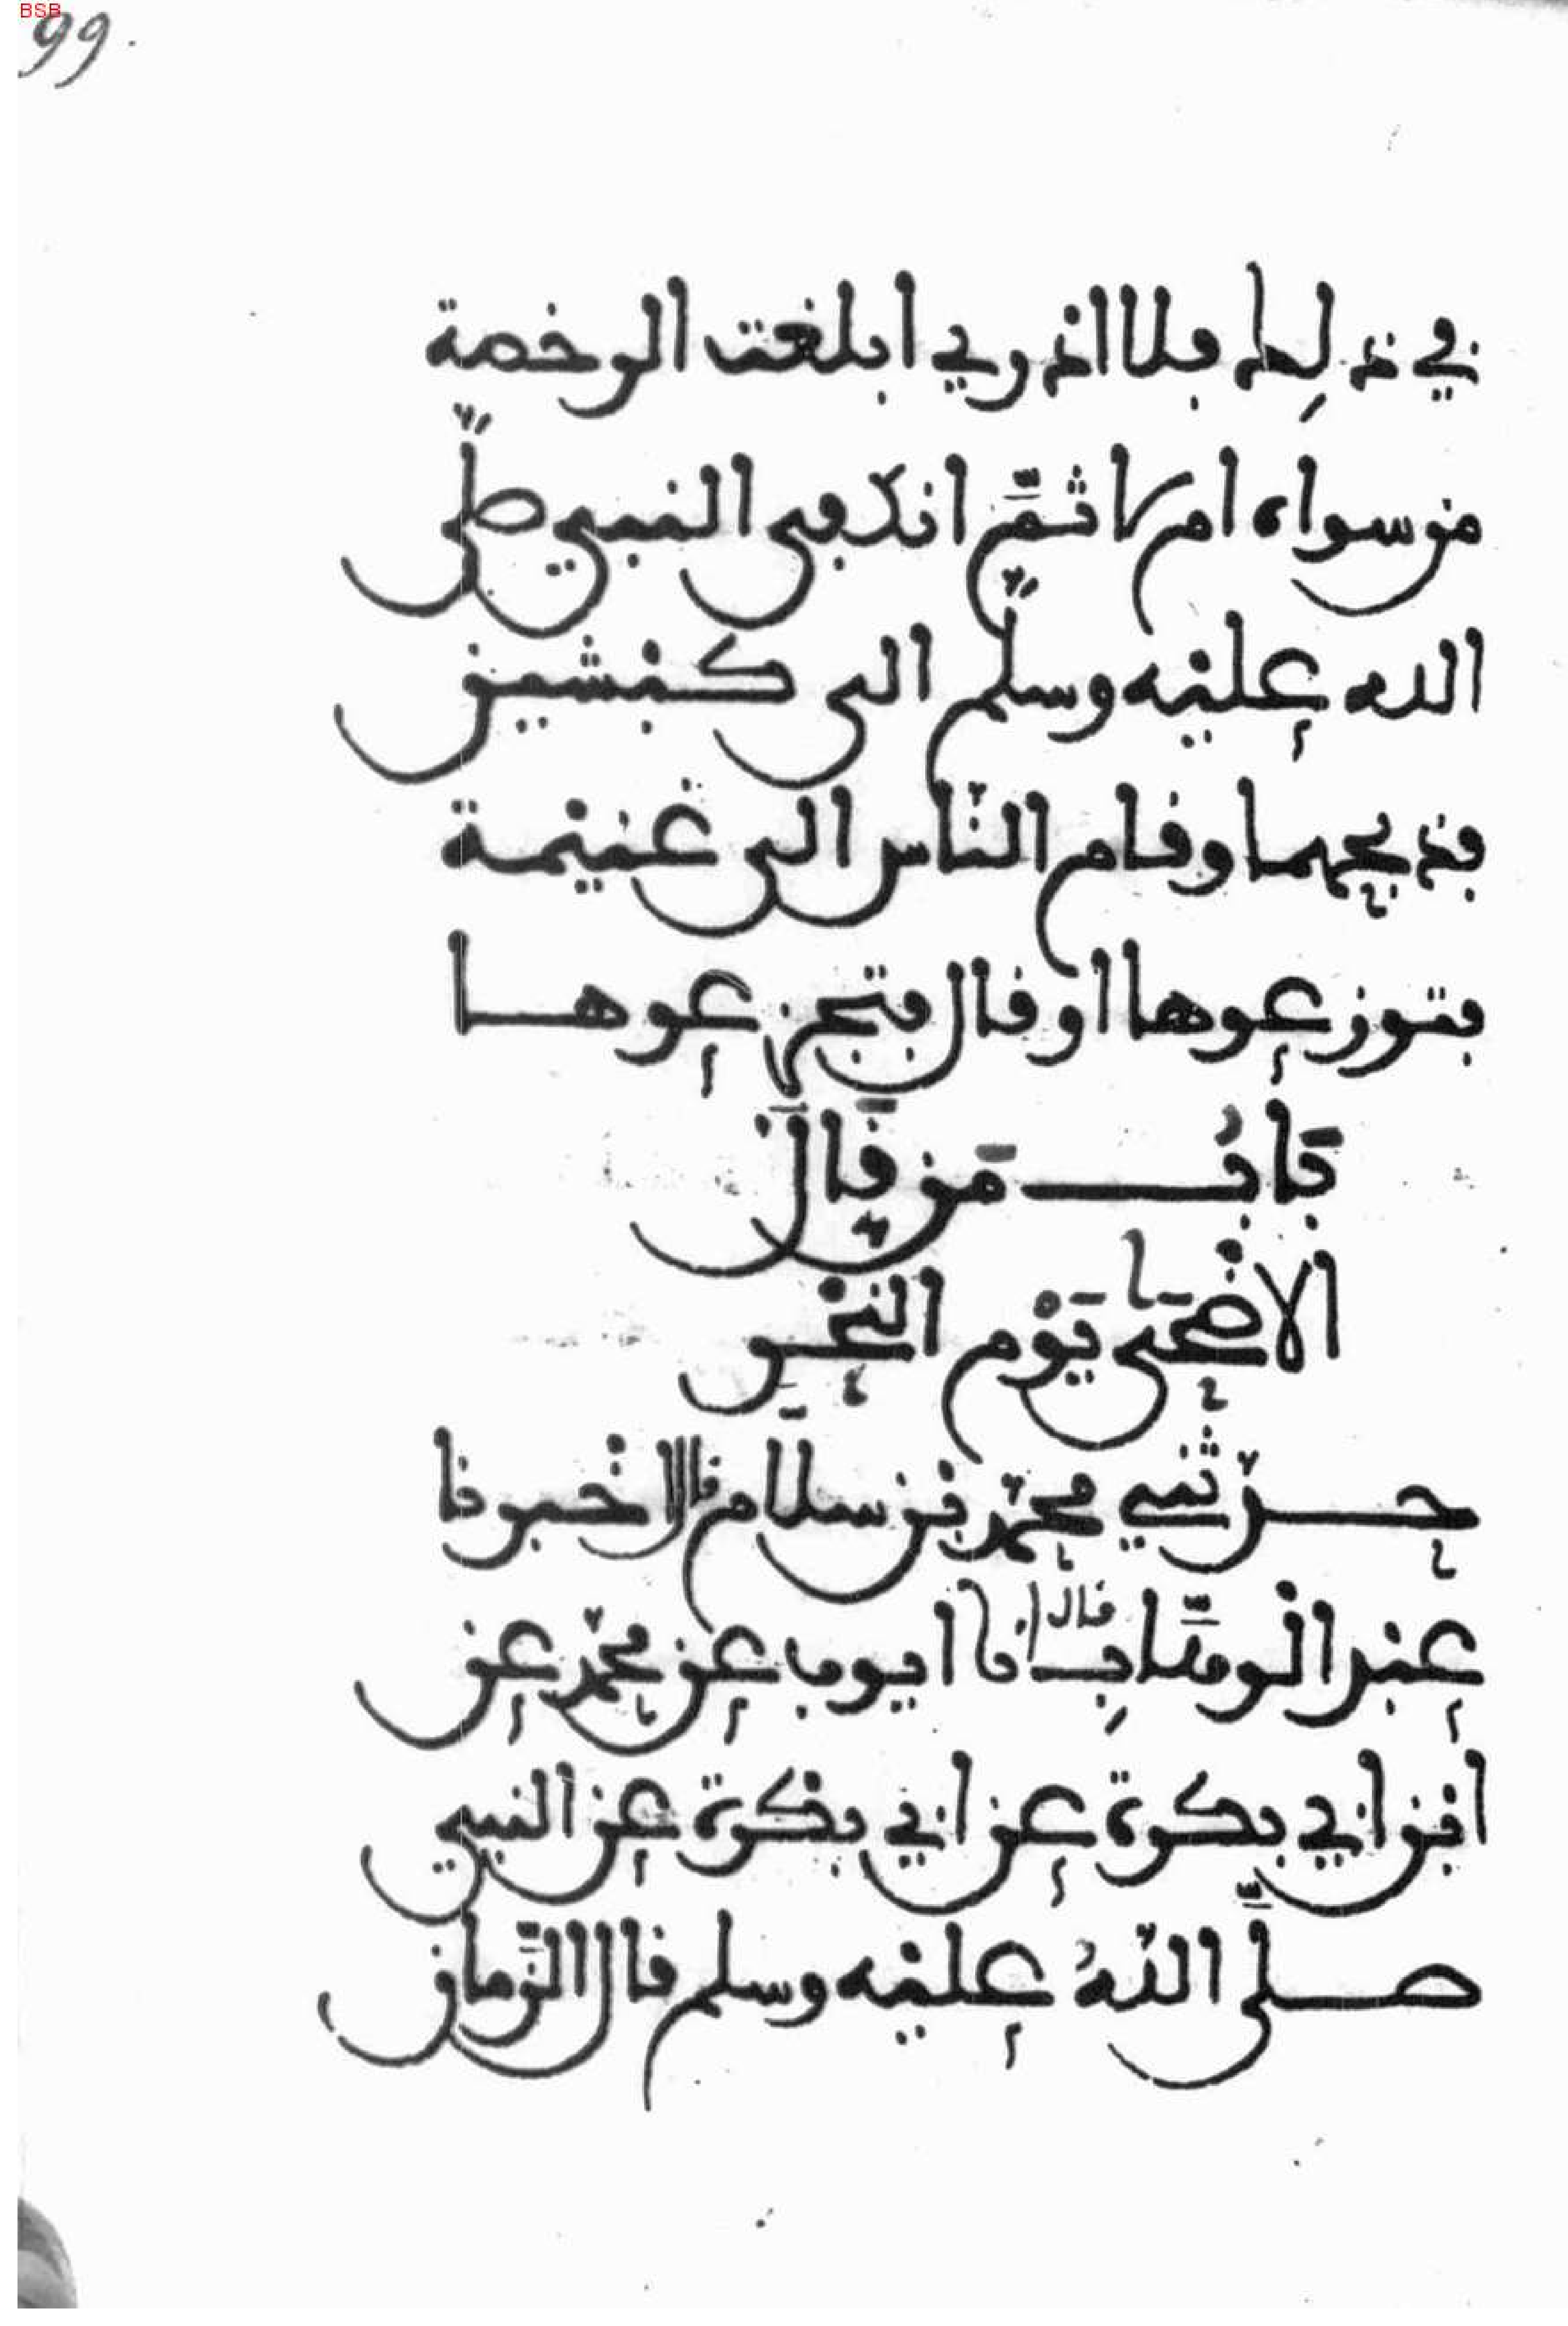 BSB
99.
في ذلِك فلا ادري ابلغت الرخصة
من سواه ام لا ثمَّ انكفى النبي صلّى
الله عليه وسلّم الى كبشين
فذبحهما وقام النّاس الى غنيمة
فتوزعوها او قال فتجزعوها
بَابُ مَن قَالَ
الاضْحَى يَوْم النحْر
حدّثني محمّد بن سلَام قال اخبرنا
عبد الوهَّابِ قال انا ايوب عن محمّد عن
ابن ابي بكرة عن ابي بكرة عن النبي
صلَّى اللّهُ عليه وسلم قال الزَّمان